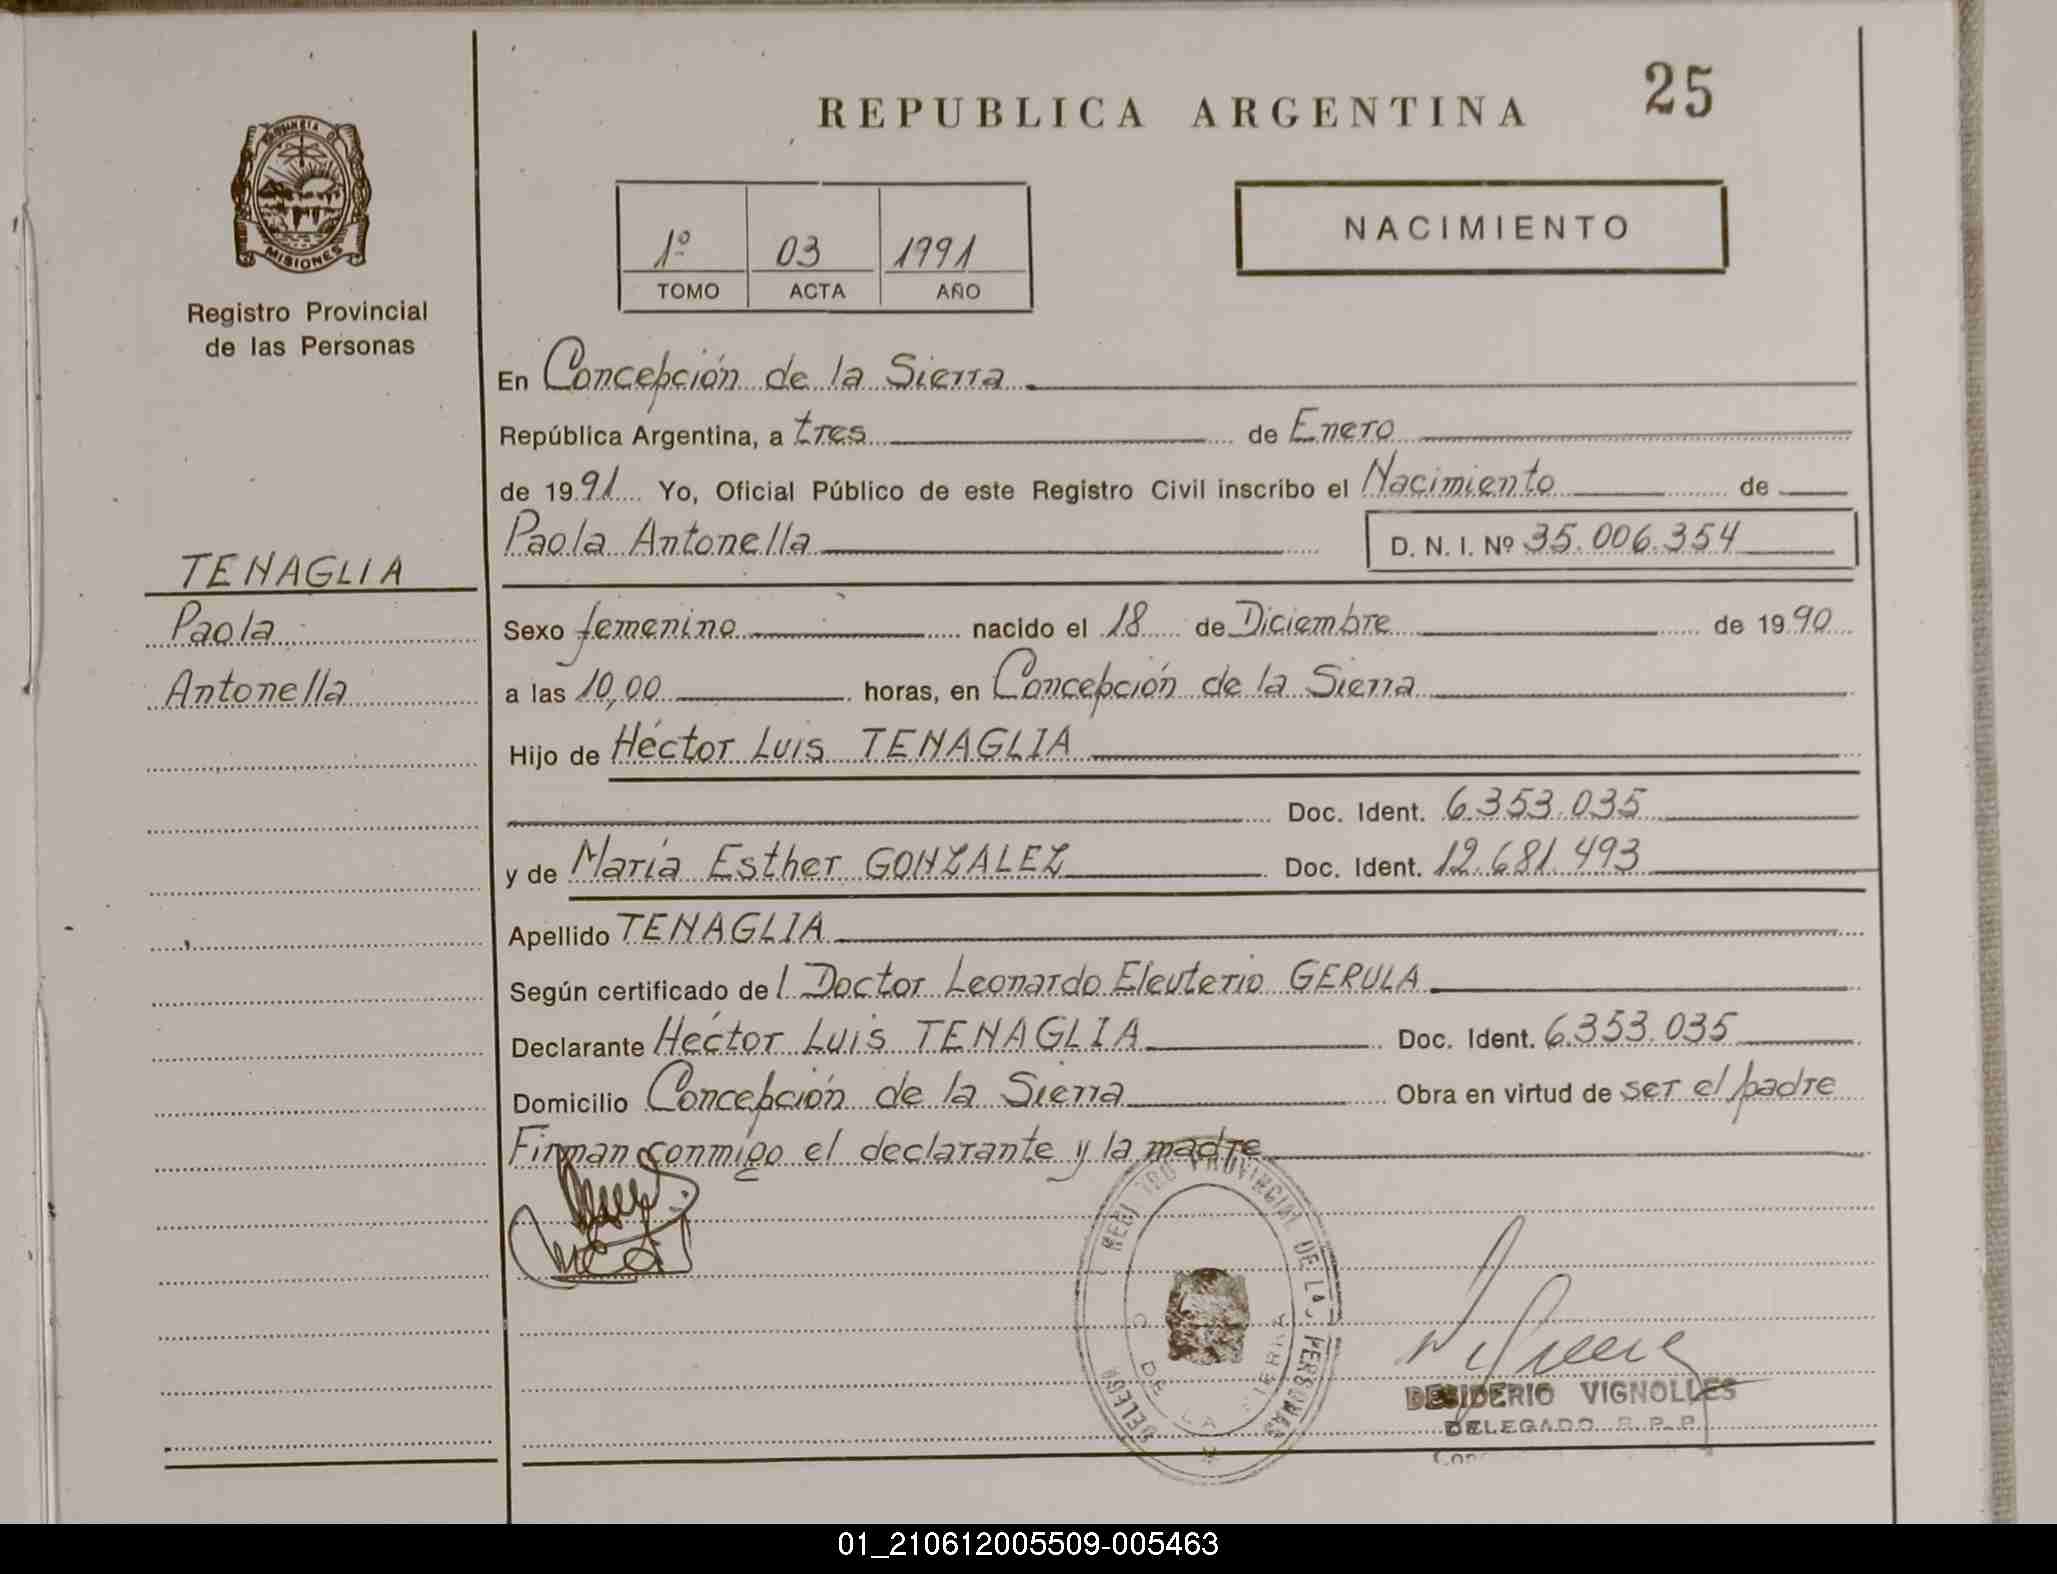 REPUBLICA ARGENTINA
25
PROVINCIA DE
MISIONES
Registro Provincial
de las Personas
1º 03 1991
TOMO ACTA AÑO
NACIMIENTO
En Concepción de la Sierra
República Argentina, a tres de Enero
de 1991 Yo, Oficial Público de este Registro Civil inscribo el Nacimiento de
Paola Antonella D. N. I. Nº 35.006.354
TENAGLIA
Paola
Antonella
Sexo femenino nacido el 18 de Diciembre de 1990
a las 10,00 horas, en Concepción de la Sierra
Hijo de Héctor Luis TENAGLIA
Doc. Ident. 6.353.035
y de María Esther GONZALEZ Doc. Ident. 12.681.493
Apellido TENAGLIA
Según certificado del Doctor Leonardo Eleuterio GERULA
Declarante Héctor Luis TENAGLIA Doc. Ident. 6.353.035
Domicilio Concepción de la Sierra Obra en virtud de ser el padre
Firman conmigo el declarante y la madre
PROVINCIAL DE LAS PERSONAS
DE LA SIERRA
DESIDERIO VIGNOLLES
DELEGADO R.P.P.
01_210612005509-005463